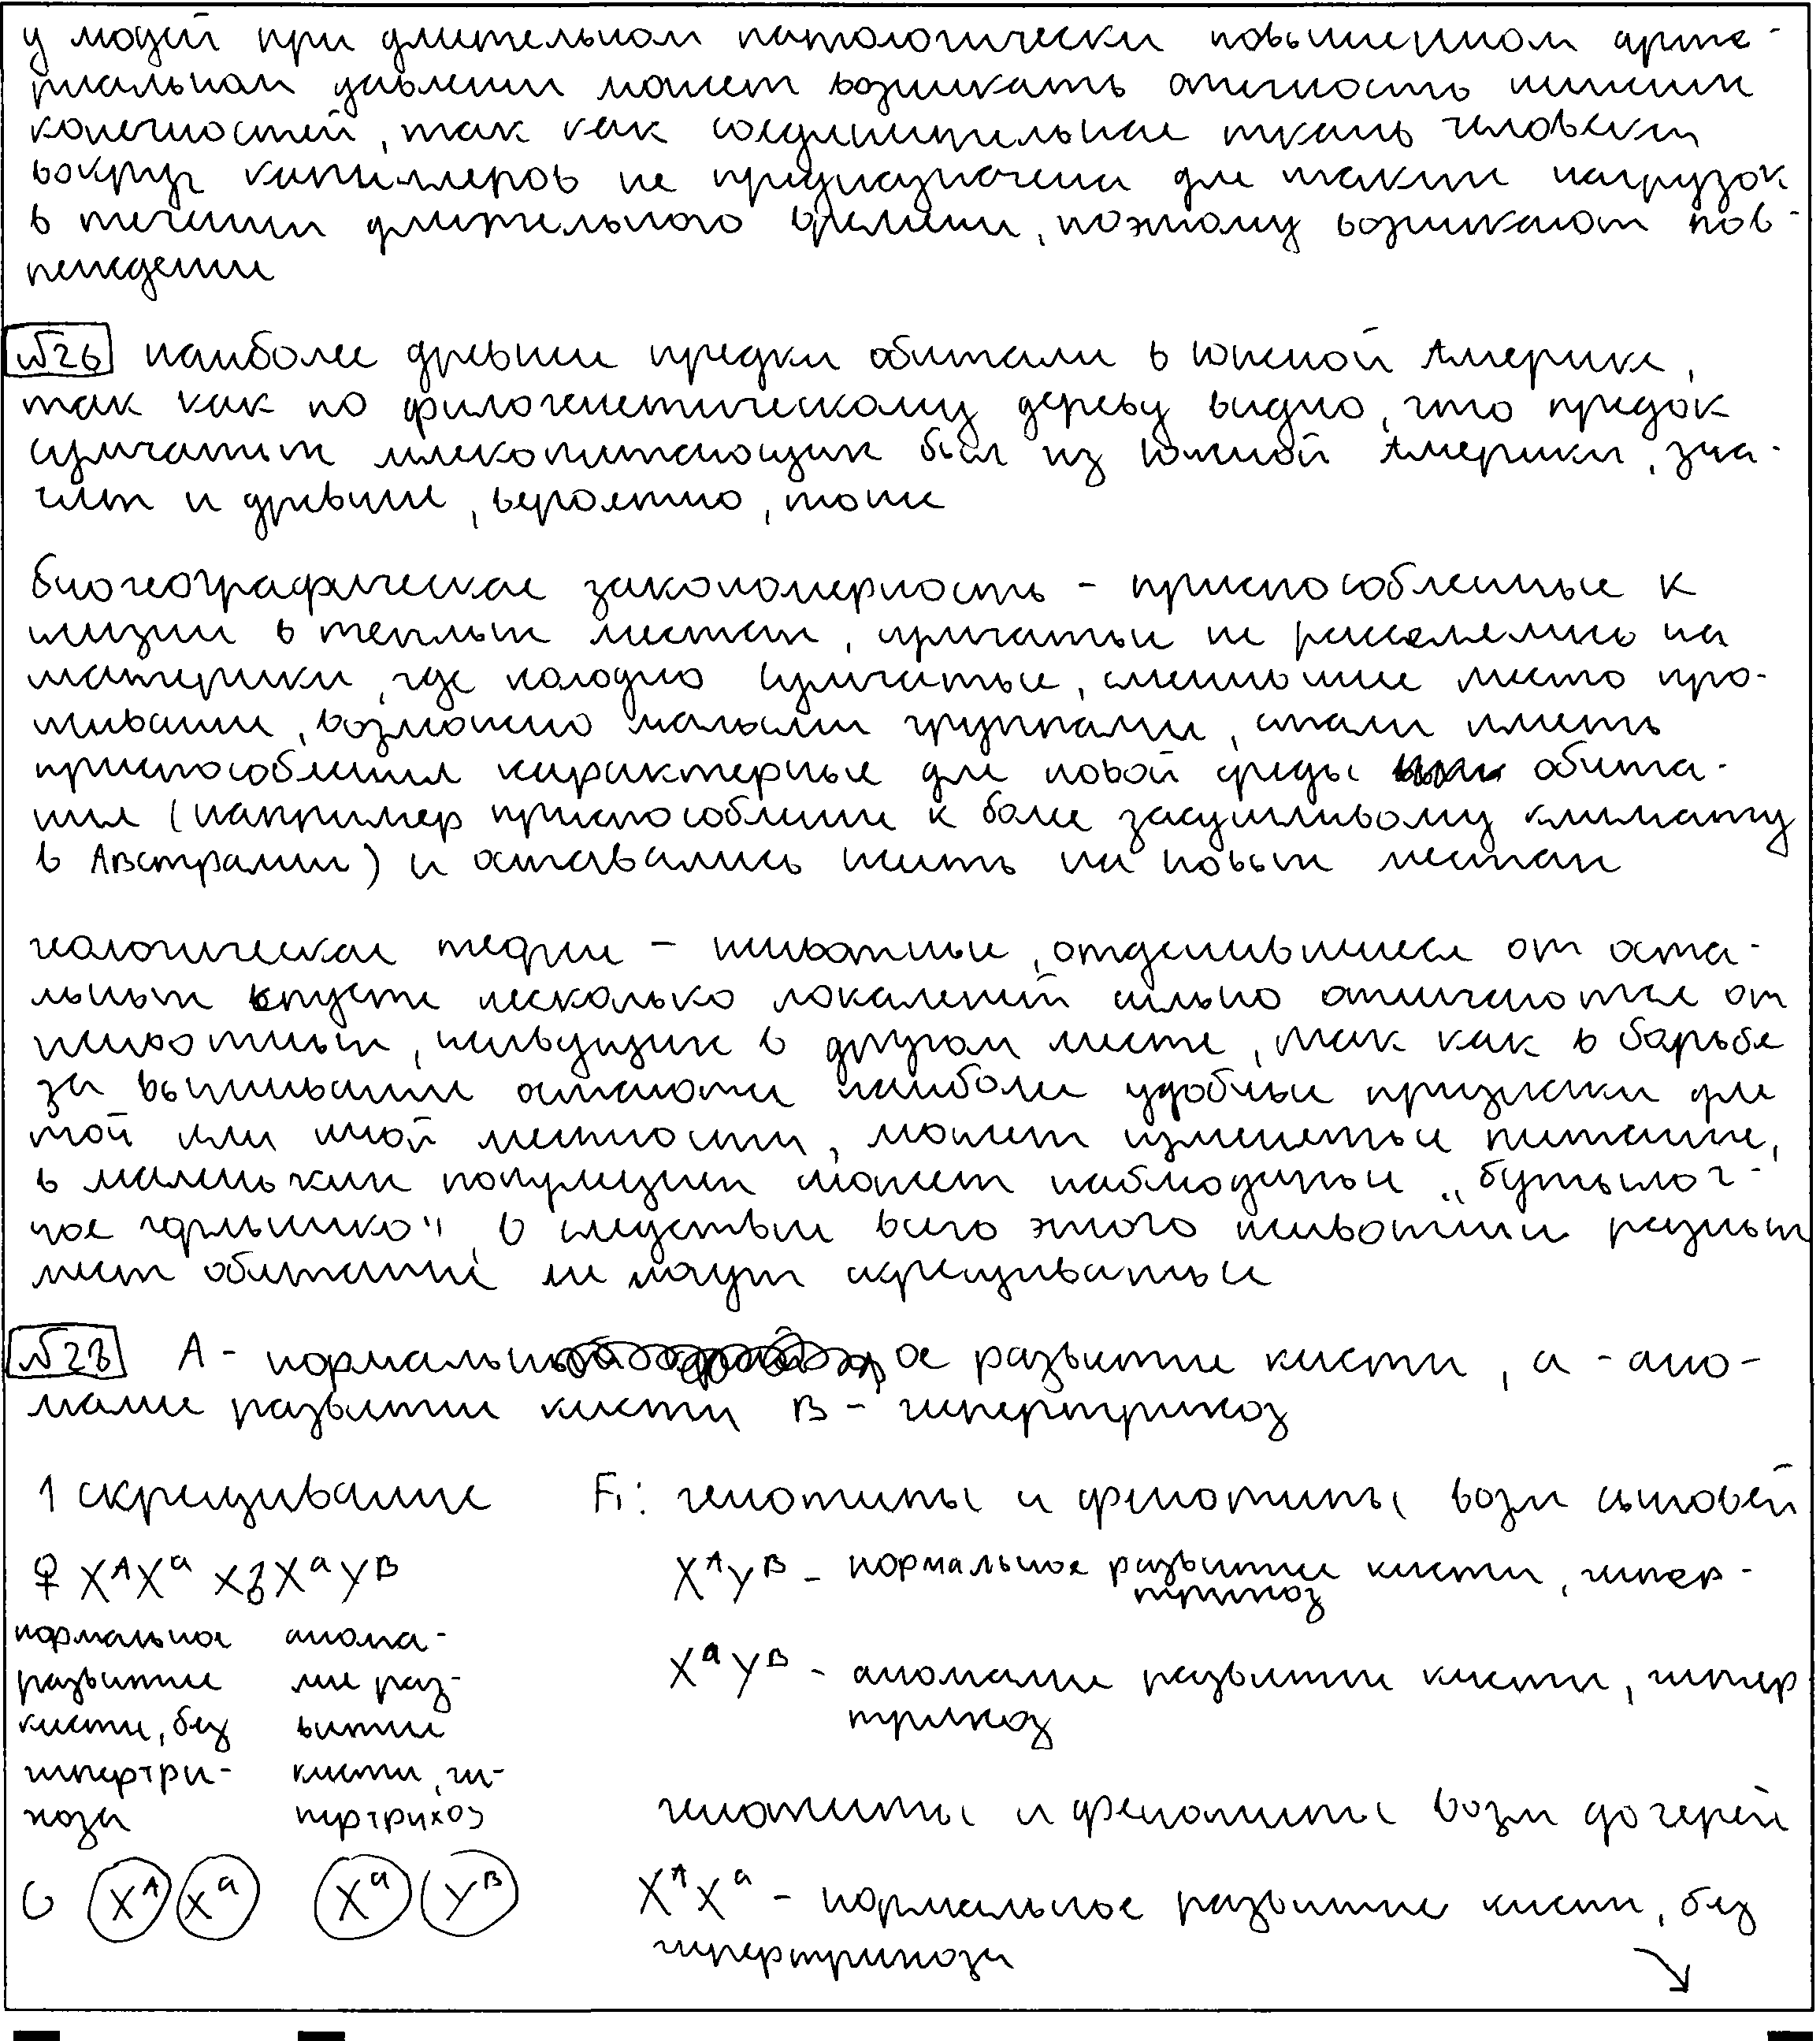 у людей при длительном патологически повышенном арте-
риальном давлении может возникать отечность нижних
конечностей, так как соединительная ткань человека
вокруг капилляров не предназначена для таких нагрузок
в течении длительного времени, поэтому возникают пов-
реждения
№26 наиболее древние предки обитали в Южной Америке,
так как по филогенетическому дереву видно, что предок
сумчатых млекопитающих был из Южной Америки, зна-
чит и древние, вероятно, тоже
биогеографическая закономерность - приспособленные к
жизни в теплых местах, сумчатые не расселялись на
материки, где холодно сумчатые, сменившие место про-
живания, возможно малыми группами, стали иметь
приспособления характерные для новой среды обита-
ния (например приспособление к более засушливому климату
в Австралии) и оставались жить на новых местах
геологическая теория - животные, отделившиеся от оста-
льных спустя несколько поколений сильно отличаются от
животных, живущих в другом месте, так как в борьбе
за выживание остаются наиболее удобные признаки для
той или иной местности, может изменяться питание,
в маленьких популяциях может наблюдаться „бутылоч-
ное горлышко", в следствии всего этого животные разных
мест обитания не могут скрещиваться
№28 А - нормальное развитие кисти, а - ано-
малия развития кисти В - гипертрихоз
1 скрещивание F₁: генотипы и фенотипы возм сыновей
♀ XᴬXᵃ x ♂ XᵃYᴮ XᴬYᴮ - нормальное развитие кисти, гипер-
трихоз
нормальное анома-
развитие лия раз- XᵃYᴮ - аномалия развития кисти, гипер
кисти, без вития трихоз
гипертри- кисти, ги-
хоза пертрихоз генотипы и фенотипы возм дочерей
G Xᴬ Xᵃ Xᵃ Yᴮ XᴬXᵃ - нормальное развитие кисти, без
гипертрихоза